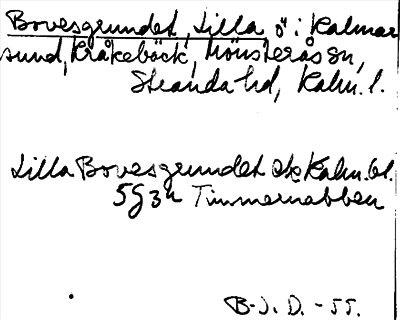 Bovesgrundet, Lilla, ö i Kalmar
sund, Kråkebäck, Mönsterås sn,
Stranda hd, Kalm. l.
Lilla Bovesgrundet ek Kalm. bl.
5G3h Timmernabben
B-J. D. - 55.